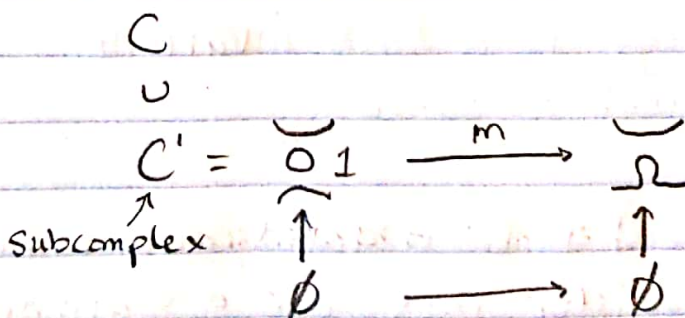 C
∪
C' = 0 1 m
subcomplex
∅ ∅